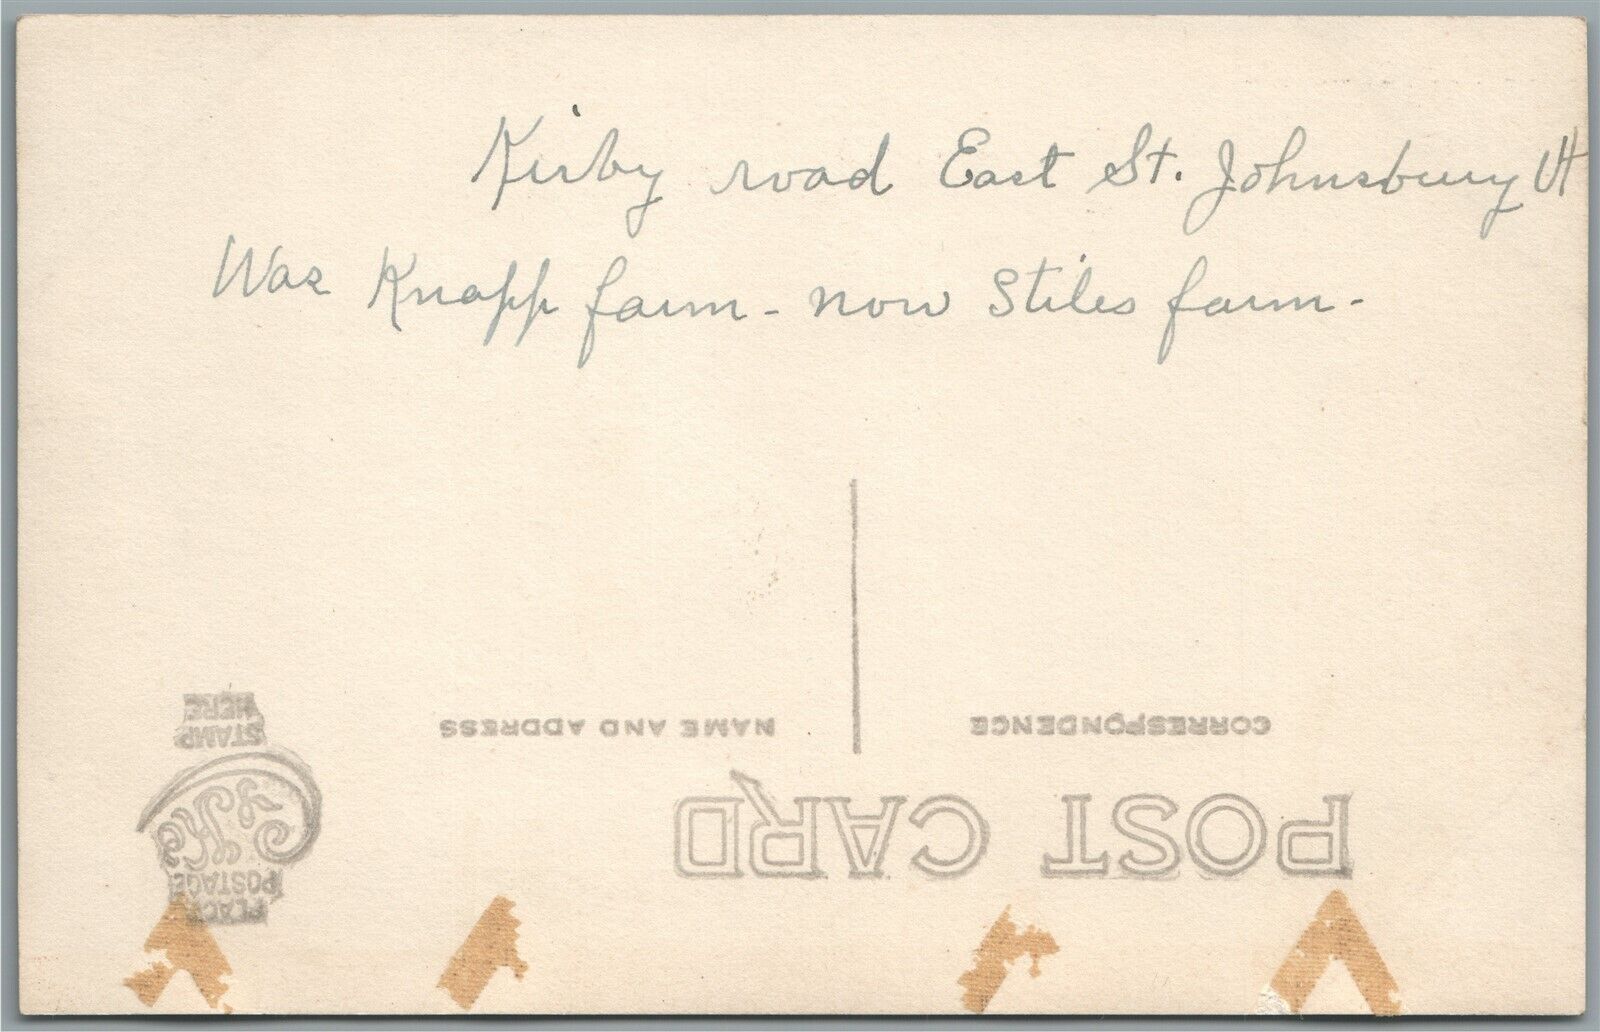 Kirby road East St. Johnsbury Vt
Was Knapp farm - now Stiles farm -
CORRESPONDENCE
NAME AND ADDRESS
POST CARD
PLACE
POSTAGE
STAMP
HERE